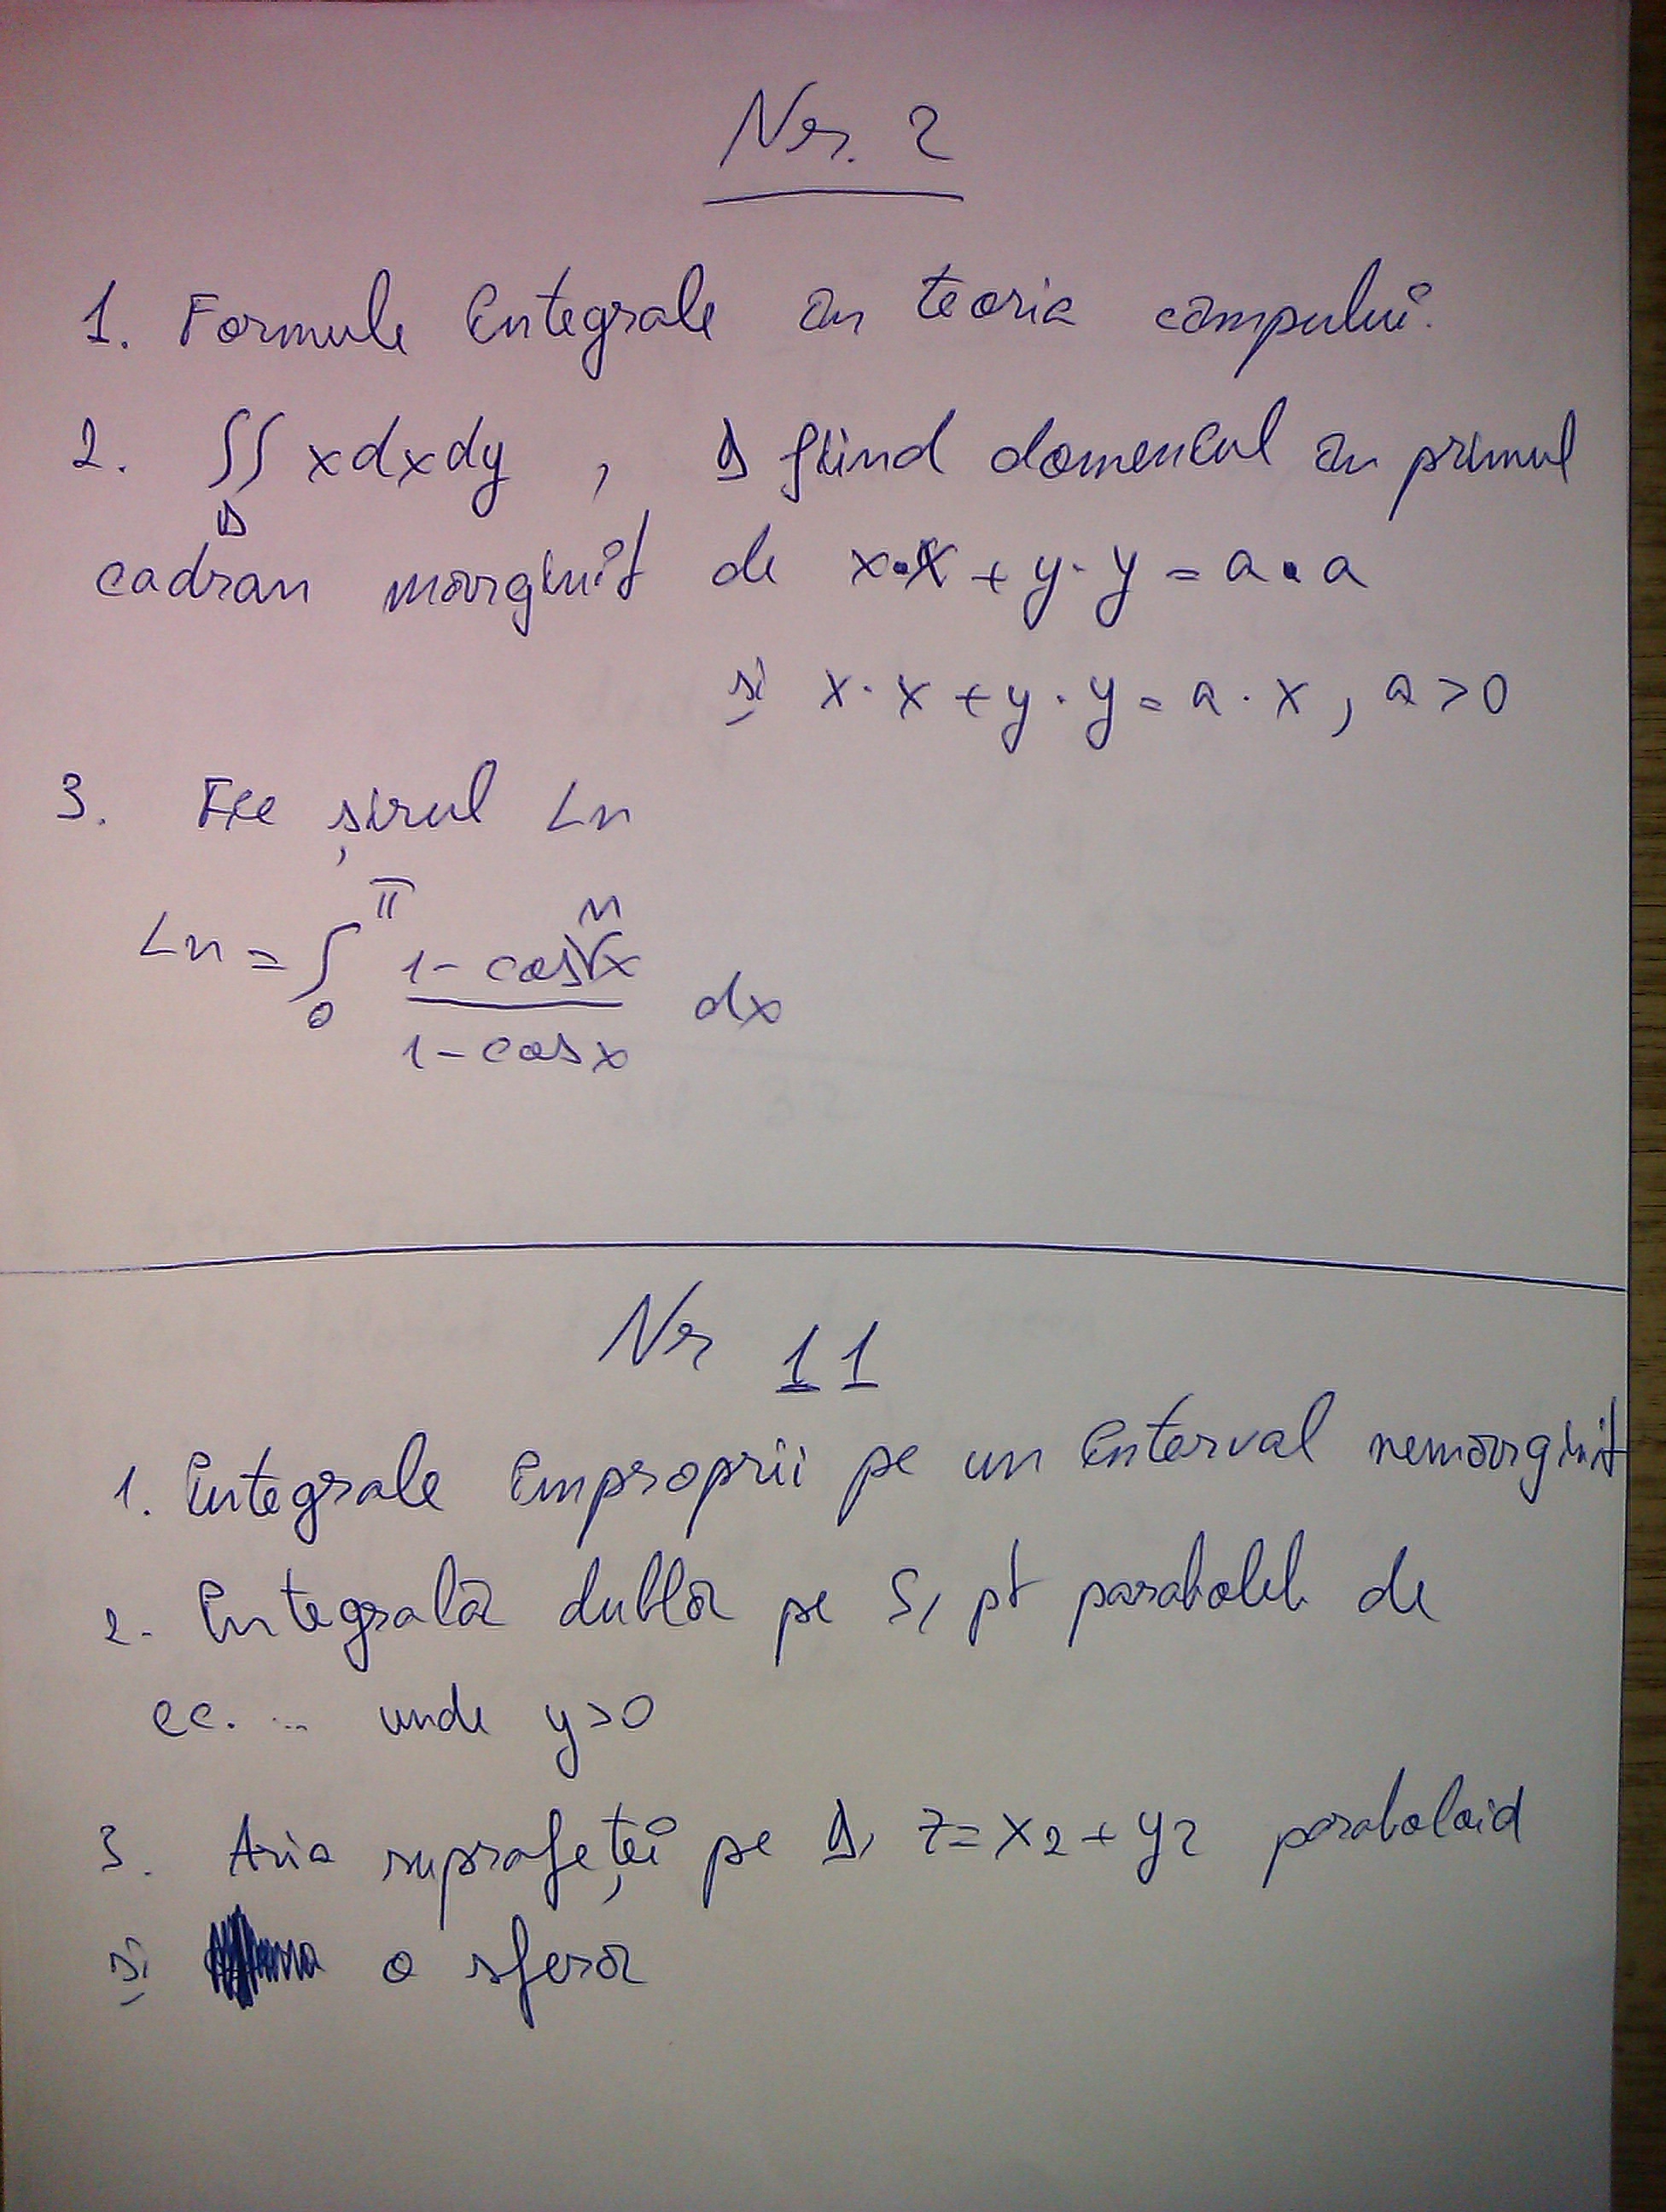 Nr. 2
1. Formule integrale în teoria câmpului.
2. ∫∫ x dx dy , D fiind domeniul în primul
D
cadran mărginit de x·x + y·y = a·a
și x·x + y·y = a·x, a>0
3. Fie șirul Ln
Ln = ∫₀^π (1 - cos ⁿ√x) / (1 - cos x) dx
Nr 11
1. Integrale improprii pe un interval nemărginit
2. Integrală dublă pe S, pt parabolele de
ec. ... unde y>0
3. Aria suprafeței pe D, z = x2 + y2 paraboloid
și o sferă